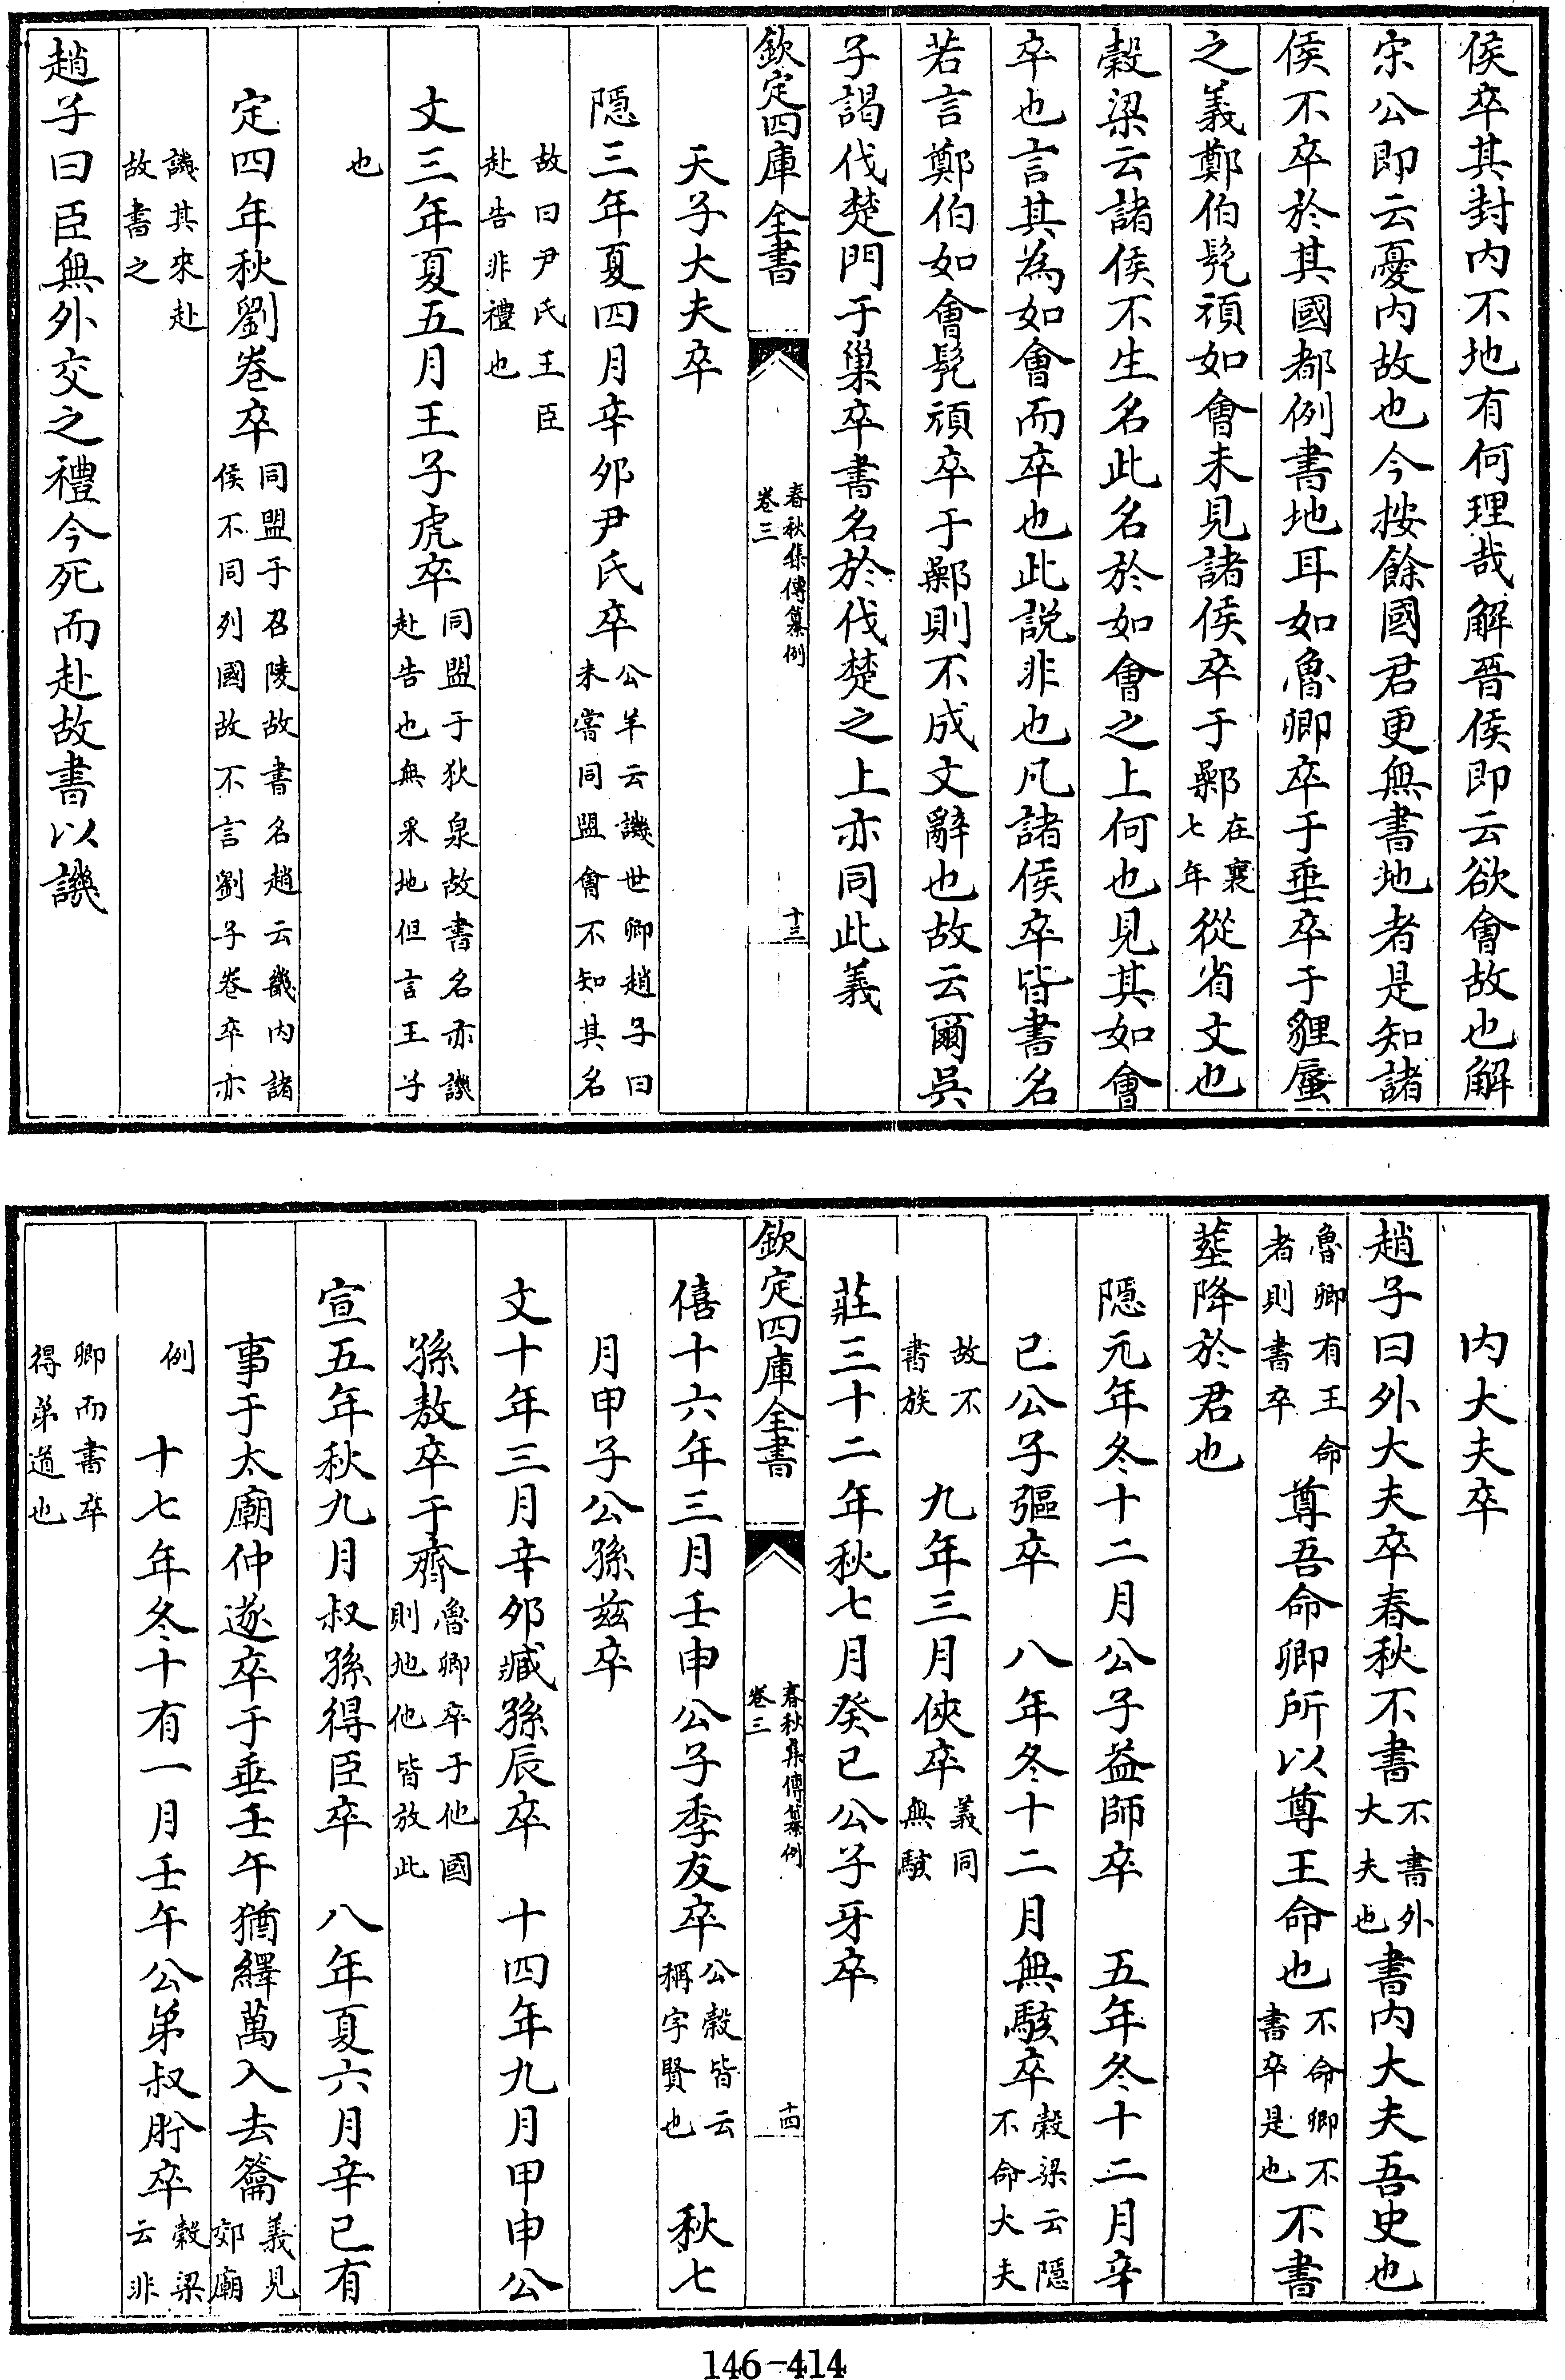 侯卒其封内不地有何理哉解晉侯即云欲會故也解
宋公即云憂内故也今按餘國君更無書地者是知諸
侯不卒於其國都例書地耳如魯卿卒于垂卒于貍蜃
之義鄭伯髠頑如會未見諸侯卒于鄵在襄七年從省文也
穀梁云諸侯不生名此名於如會之上何也見其如會
卒也言其為如會而卒也此説非也凡諸侯卒皆書名
若言鄭伯如會髠頑卒于鄵則不成文辭也故云爾吳
子謁伐楚門于巢卒書名於伐楚之上亦同此義
欽定四庫全書 春秋集傳纂例 卷三 十三
天子大夫卒
隱三年夏四月辛卯尹氏卒公羊云譏世卿趙子曰未嘗同盟會不知其名
故曰尹氏王臣赴告非禮也
文三年夏五月王子虎卒同盟于狄泉故書名亦譏赴告也無采地但言王子
也
定四年秋劉卷卒同盟于召陵故書名趙云畿内諸侯不同列國故不言劉子卷卒亦
譏其來赴故書之
趙子曰臣無外交之禮今死而赴故書以譏
内大夫卒
趙子曰外大夫卒春秋不書不書外大夫也書内大夫吾史也
魯卿有王命者則書卒尊吾命卿所以尊王命也不命卿不書卒是也不書
葬降於君也
隱元年冬十二月公子益師卒 五年冬十二月辛
巳公子彄卒 八年冬十二月無駭卒穀梁云隱不命大夫
故不書族 九年三月俠卒義同無駭
莊三十二年秋七月癸巳公子牙卒
欽定四庫全書 春秋集傳纂例 卷三 十四
僖十六年三月壬申公子季友卒公穀皆云稱字賢也 秋七
月甲子公孫兹卒
文十年三月辛卯臧孫辰卒 十四年九月甲申公
孫敖卒于齊魯卿卒于他國則地他皆放此
宣五年秋九月叔孫得臣卒 八年夏六月辛巳有
事于太廟仲遂卒于垂壬午猶繹萬入去籥義見郊廟
例 十七年冬十有一月壬午公弟叔肸卒穀梁云非
卿而書卒得弟道也
146-414